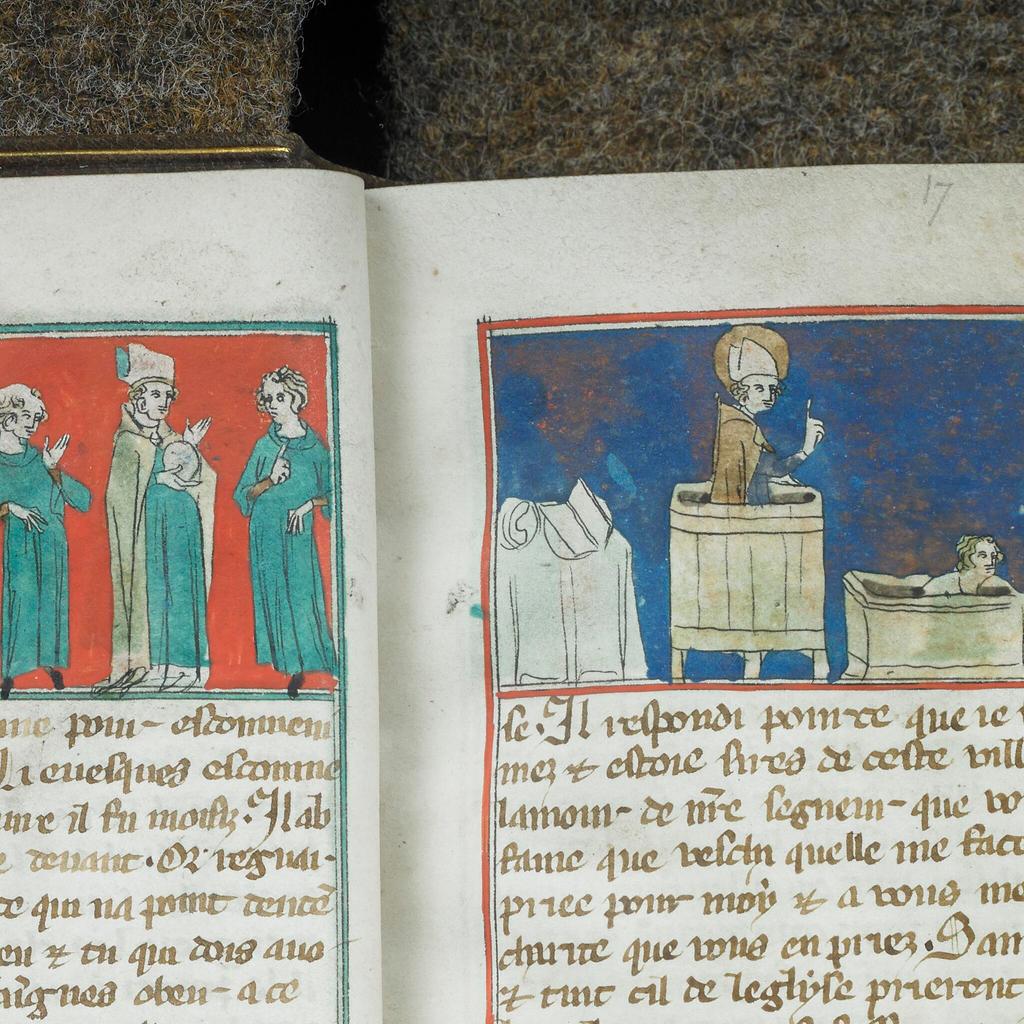 me pour escomueni
Li euesques escomme
ure il fu moisis. Il ab
e deuant. Or regnai
te qui na point
eu & tu qui dois auo
obeir a ce
17
se. Il respondi pour ce que ie
mez & estoie sires de ceste vill
lamour de nre segneur que vo
fame que vesci quelle me face
priee pour moy & a vous me
charite que vous en priez. Dam
& tuit cil de leglyse prierent